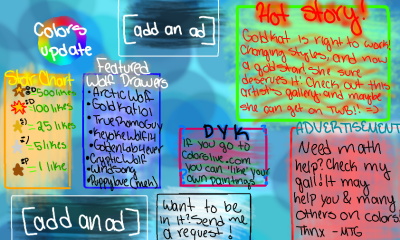 Colors
update
[add an ad]
Hot Story!
Goldkat is right to work!
Changing styles, and now
a gold star! She sure
deserves it. Check out this
artist's gallery and maybe
she can get on TWB!! :->
Stars Chart
=500 likes
=100 likes
=25 likes
=5 likes
=1 like
Featured
Wolf Drawers
•Arctic Wolf
•Goldkat01
•TrueRomoGuy
•KeyokeWolf14
•Goldenlab4ever
•CrypticWolf
•Windsong
•Puppylove (meh)
DYK
if you go to
colorslive.com
you can "like" your
own paintings
ADVERTISEMENT
Need math
help? Check my
gall! It may
help you & many
others on colors!
Thnx -MTG
[add an ad]
Want to be
in it? Send me
a request!